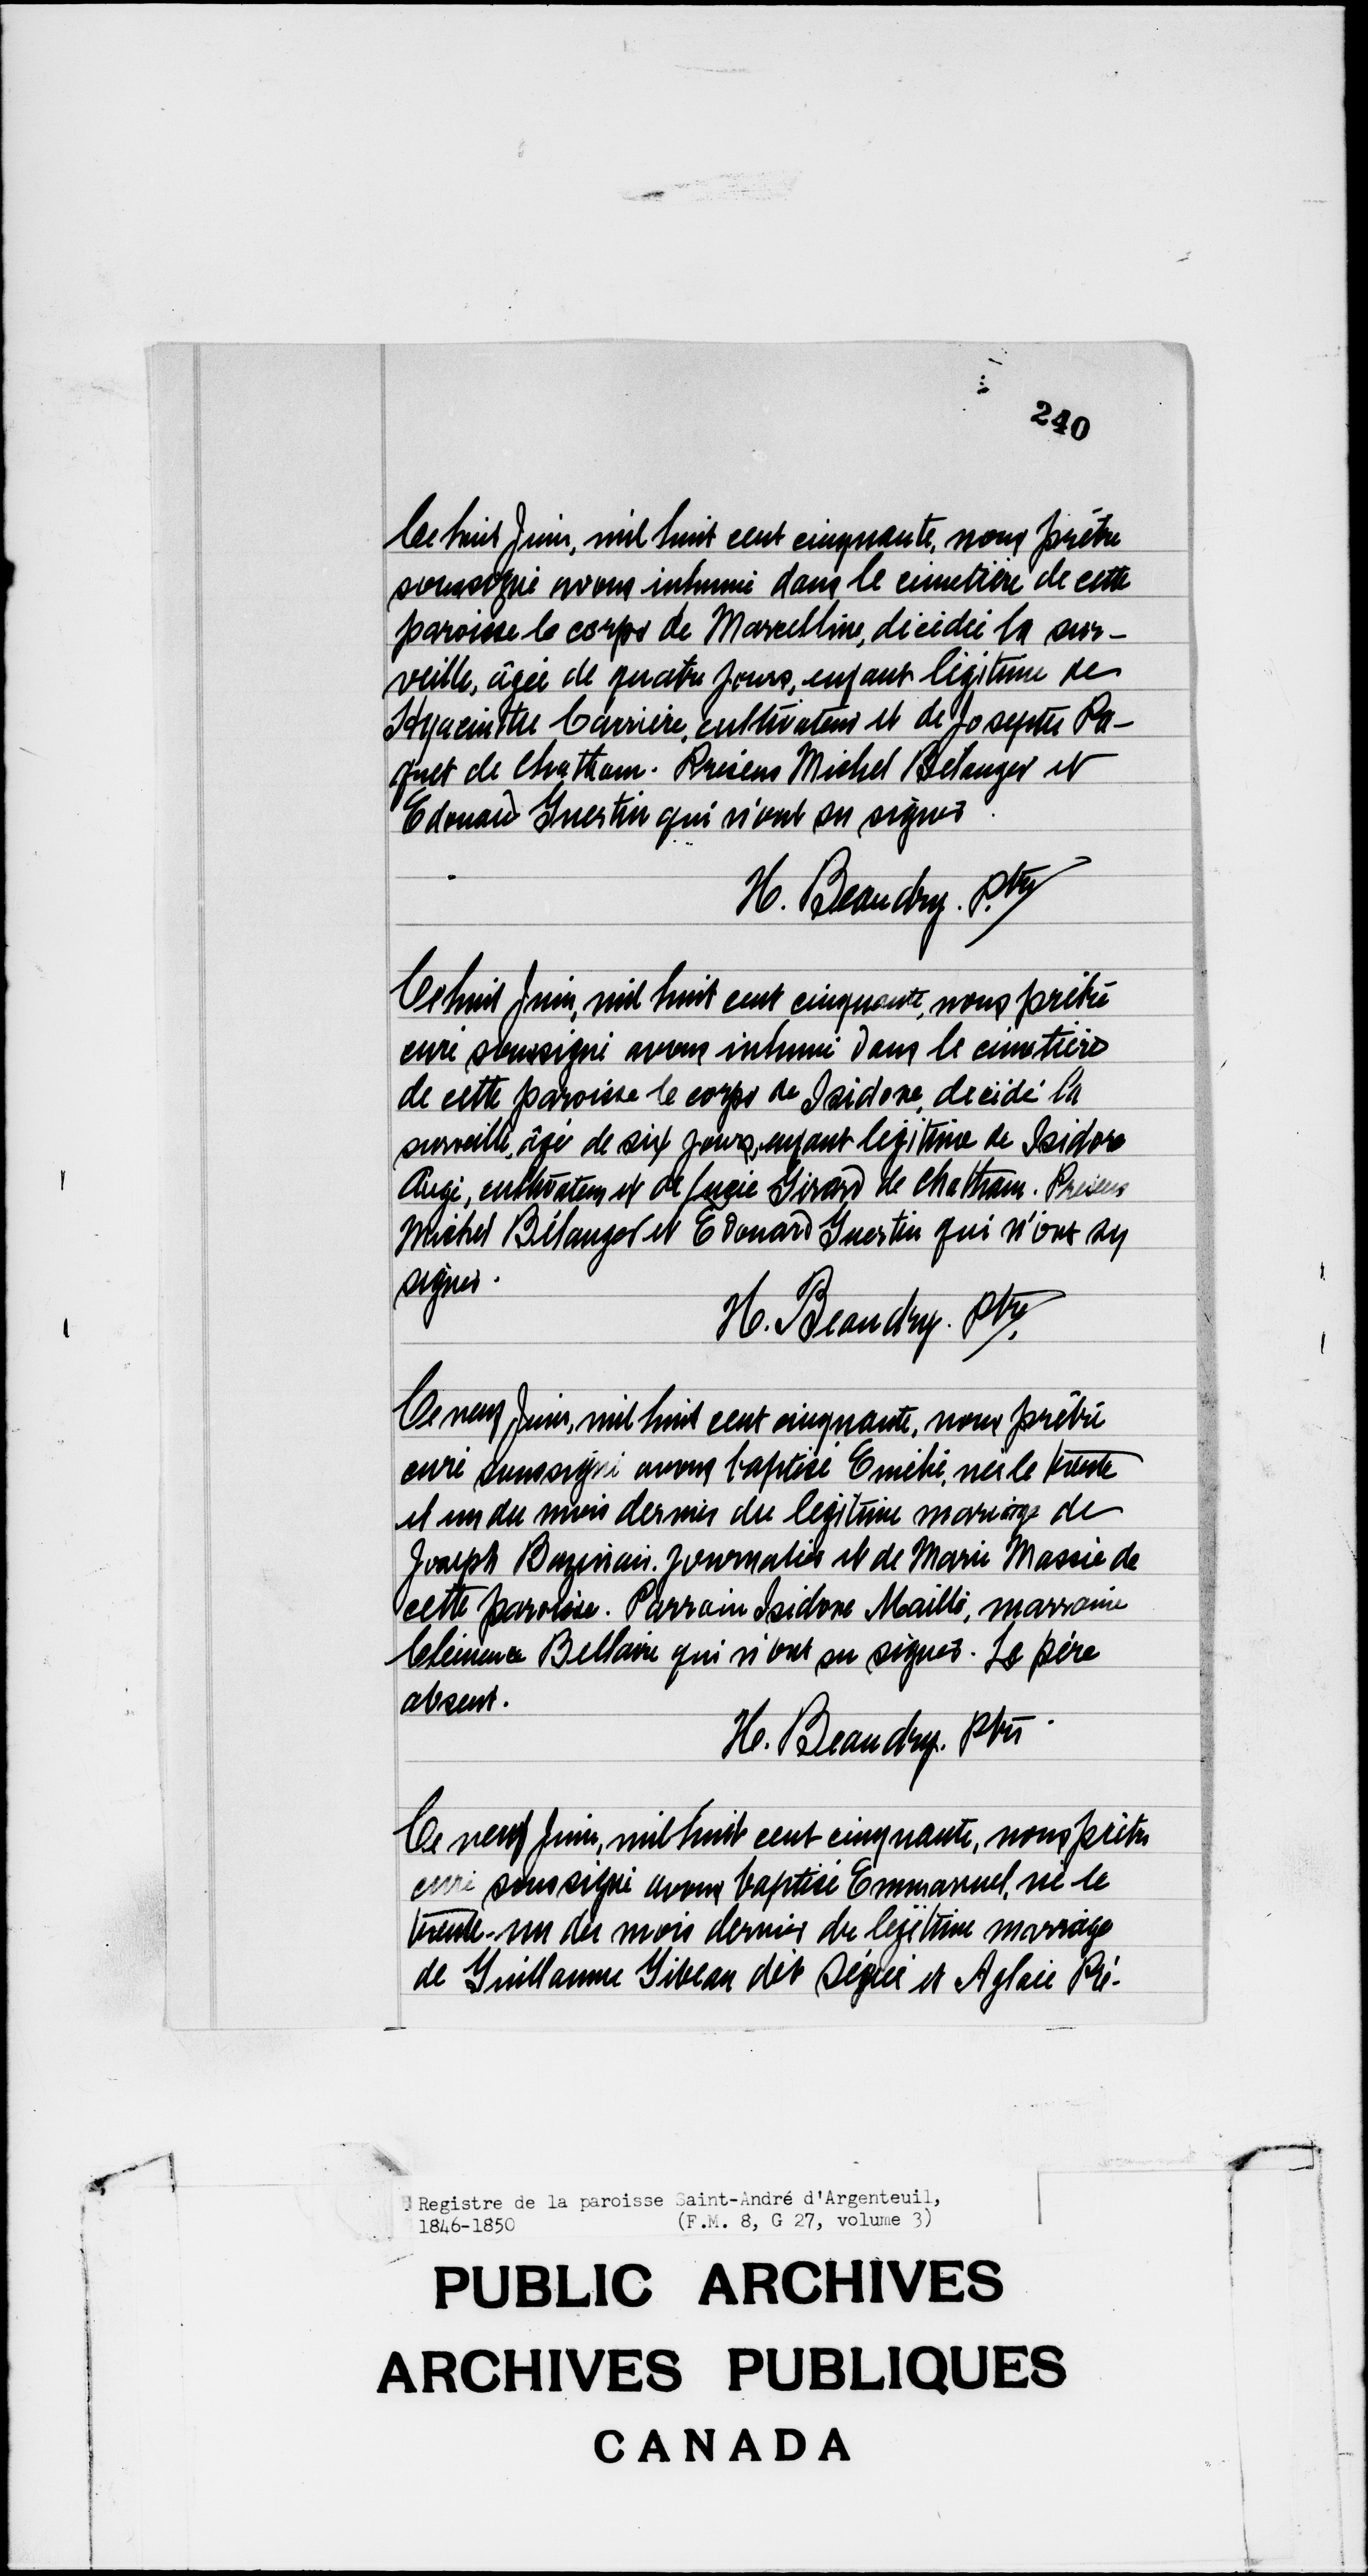 240
Ce huit Juin, mil huit cent cinquante, nous prêtre
soussigné avons inhumé dans le cimetière de cette
paroisse le corps de Marcelline, décédée la sur-
veille, âgée de quatre jours, enfant légitime de
Hyacinthe Carrière, cultivateur et de Josephte Pa-
quet de Chatham. Présens Michel Bélanger et
Edouard Guertin qui n'ont su signer.
H. Beaudry. Ptre
Ce huit Juin, mil huit cent cinquante, nous prêtre
curé soussigné avons inhumé dans le cimetière
de cette paroisse le corps de Isidore, décédé la
surveille, âgé de six jours, enfant légitime de Isidore
Augé, cultivateur et de Girard de Chatham. Présens
Michel Bélanger et Edouard Guertin qui n'ont su
signer.
H. Beaudry. Ptre
Ce neuf Juin, mil huit cent cinquante, nous prêtre
curé soussigné avons baptisé Emélie, née le trente
et un du mois dernier du légitime mariage de
Joseph Bazinais. journalier et de Marie Massie de
cette paroisse. Parrain Isidore Maillé, marraine
Clémence Bellaire qui n'ont su signer. Le père
absent.
H. Beaudry. Ptre.
Ce neuf Juin, mil huit cent cinquante, nous prêtre
curé soussigné avons baptisé Emmanuel, né le
trente-un du mois dernier du légitime marriage
de Guillaume Gibeau dit Séguié et Aglaïe Pré-
Registre de la paroisse Saint-André d'Argenteuil,
1846-1850 (F.M. 8, G 27, volume 3)
PUBLIC ARCHIVES
ARCHIVES PUBLIQUES
CANADA